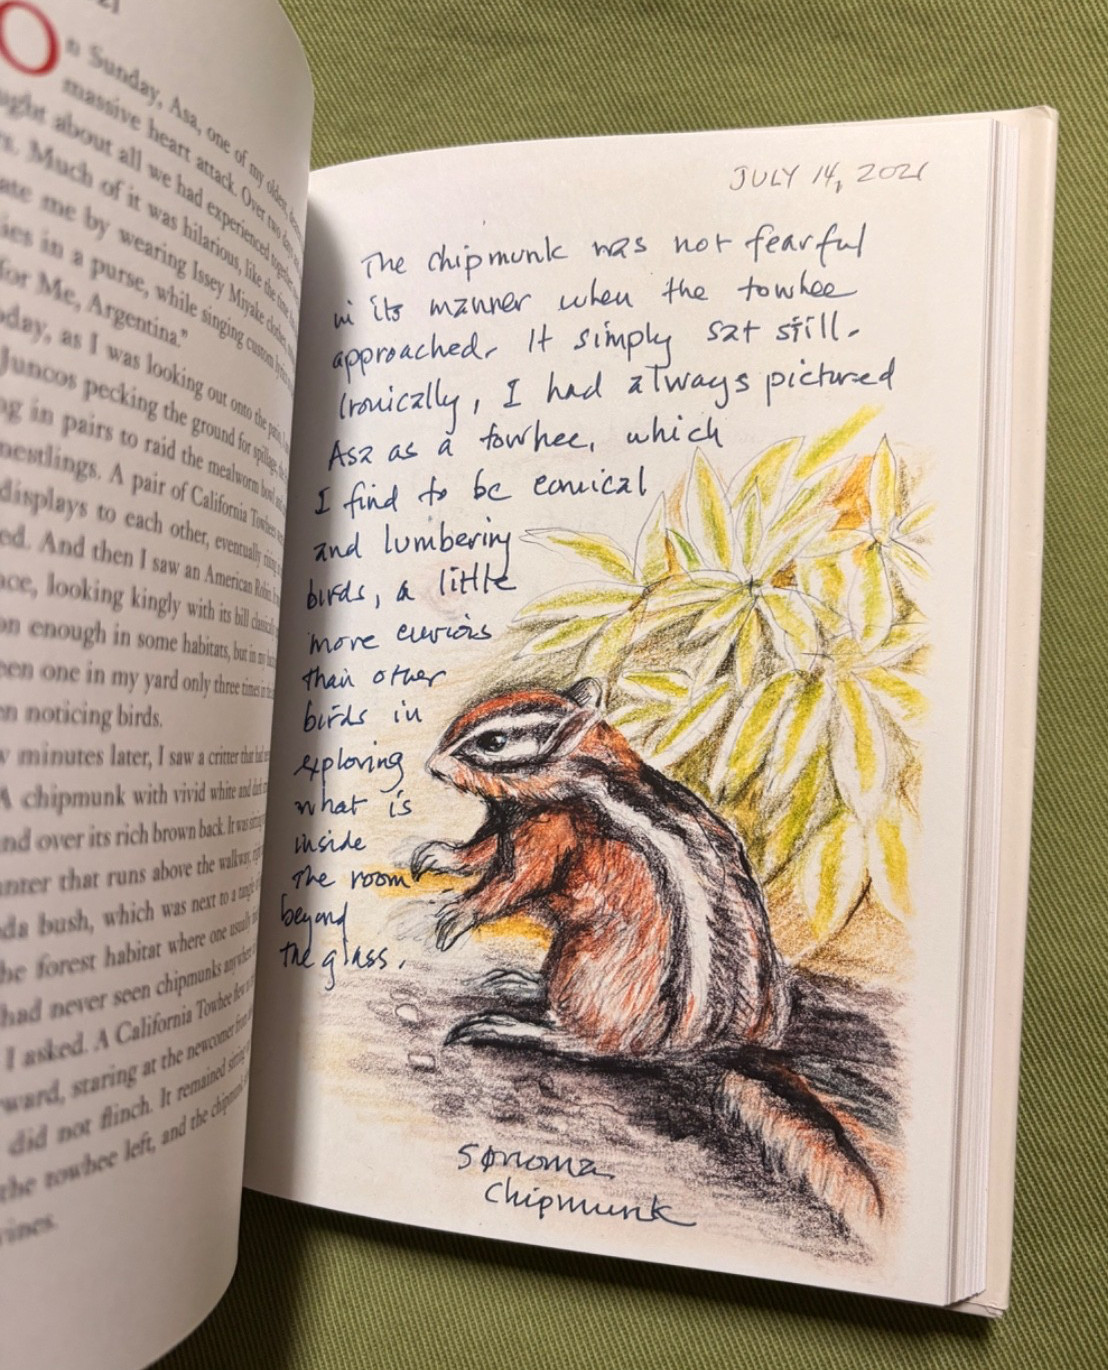 21
On Sunday, Asa, one of my oldest,
massive heart attack. Over two
ught about all we had experienced
s. Much of it was hilarious, like the
ate me by wearing Issey Miyake
ies in a purse, while singing custom
for Me, Argentina."
day, as I was looking out onto the patio,
Juncos pecking the ground for spillage,
ng in pairs to raid the mealworm bowl
nestlings. A pair of California Towhees
displays to each other, eventually
ed. And then I saw an American Robin.
ce, looking kingly with its bill
on enough in some habitats, but in my
een one in my yard only three times in
n noticing birds.
w minutes later, I saw a critter that
A chipmunk with vivid white and
nd over its rich brown back. It was
nter that runs above the walkway,
da bush, which was next to a
he forest habitat where one usually
had never seen chipmunks
I asked. A California Towhee
ward, staring at the newcomer from
did not flinch. It remained
the towhee left, and the chipmunk
vines.
JULY 14, 2021
The chipmunk was not fearful
in its manner when the towhee
approached. It simply sat still.
Ironically, I had always pictured
Asa as a towhee, which
I find to be comical
and lumbering
birds, a little
more curious
than other
birds in
exploring
what is
inside
the room
beyond
the glass.
Sonoma
Chipmunk